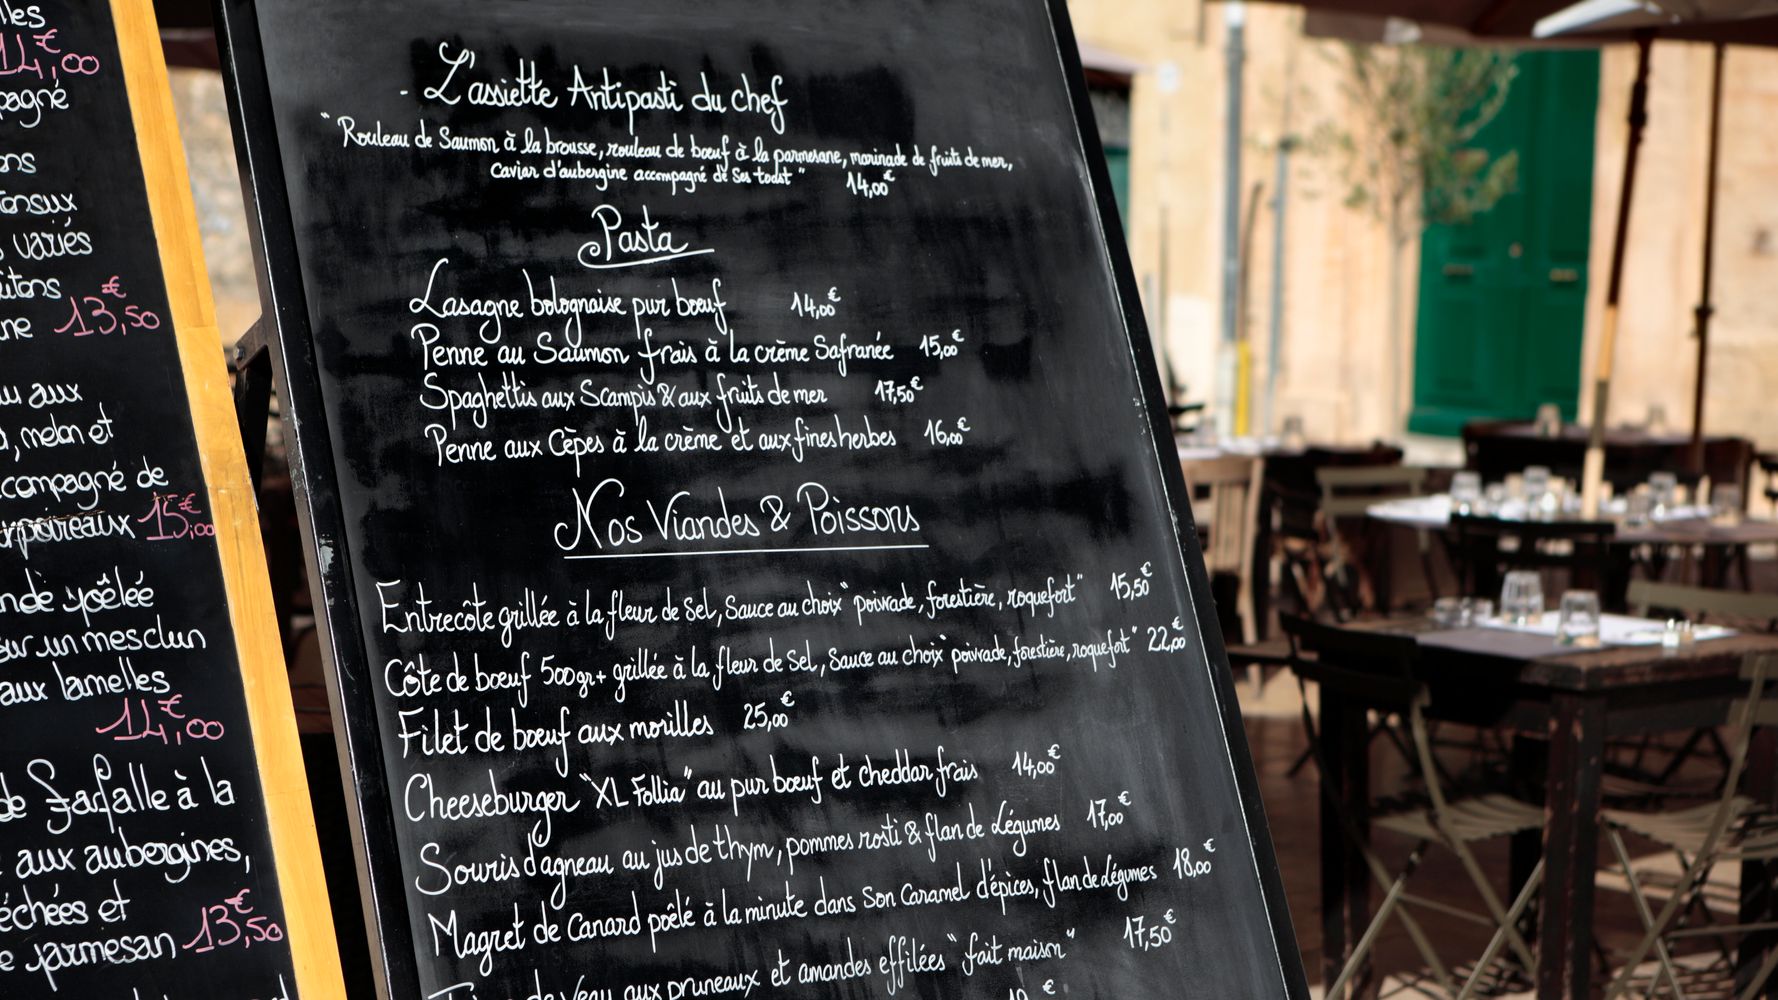 14,00€
ons
variés
13,50€
aux
, melon et
compagné de
15,00€
poêlée
sur un mesclun
aux lamelles
14,00€
de farfalle à la
aux aubergines,
échées et
parmesan 13,50€
- L'assiette Antipasti du chef
"Rouleau de Saumon à la brousse, rouleau de bœuf à la parmesane, marinade de fruits de mer,
caviar d'aubergine accompagné de ses toast" 14,00€
Pasta
Lasagne bolognaise pur bœuf 14,00€
Penne au Saumon frais à la crème Safranée 15,00€
Spaghettis aux Scampis & aux fruits de mer 17,50€
Penne aux Cèpes à la crème et aux fines herbes 16,00€
Nos Viandes & Poissons
Entrecôte grillée à la fleur de Sel, Sauce au choix "poivrade, forestière, roquefort" 15,50€
Côte de bœuf 500gr+ grillée à la fleur de Sel, Sauce au choix "poivrade, forestière, roquefort" 22,00€
Filet de bœuf aux morilles 25,00€
Cheeseburger "XL Follia" au pur bœuf et cheddar frais 14,00€
Souris d'agneau au jus de thym, pommes rosti & flan de légumes 17,00€
Magret de Canard poêlé à la minute dans Son Caramel d'épices, flan de légumes 18,00€
de Veau aux pruneaux et amandes effilées "fait maison" 17,50€